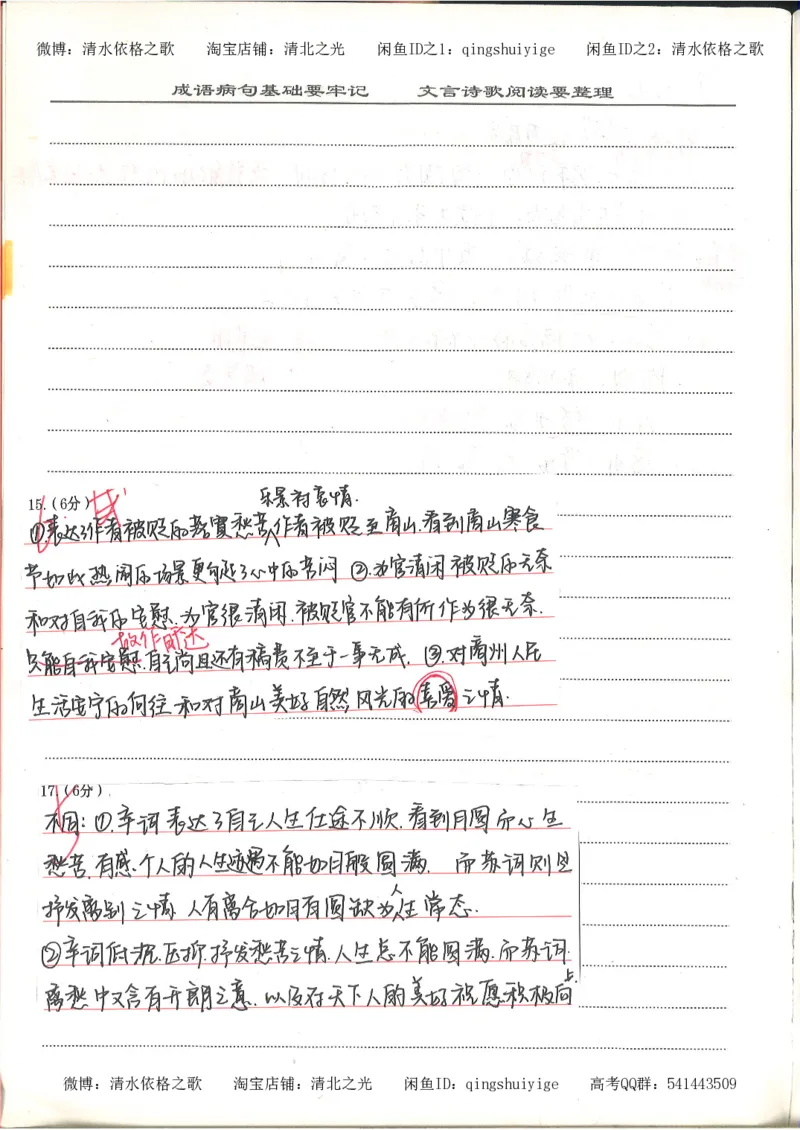 微博：清水依格之歌 淘宝店铺：清北之光 闲鱼ID之1：qingshuiyige 闲鱼ID之2：清水依格之歌
成语病句基础要牢记 文言诗歌阅读要整理
乐景衬哀情.
15.（6分）
①表达了作者被贬的苦寞愁苦,作者被贬至商山.看到商山寒食
节如此热闹的场景更勾起了心中的苦闷 ②.为官清闲被贬的无奈
和对自我的安慰.为官很清闲.被贬官不能有所作为很无奈.
故作旷达
只能自我安慰.自己尚且还有稿费不至于一事无成. ③.对商州人民
生活安宁的向往和对商山美好自然风光的喜爱之情.
17.（6分）.
不同：①.辛词表达了自己人生仕途不顺.看到月圆而心生
愁苦.有感个人的人生遭遇不能如月般圆满. 而苏词则是
抒发离别之情 人有离合如月有圆缺为人生常态.
②辛词低沉.压抑.抒发愁苦之情.人生总不能圆满.而苏词
离愁中又含有开朗之意.以及存天下人的美好祝愿积极向上.
微博：清水依格之歌 淘宝店铺：清北之光 闲鱼ID：qingshuiyige 高考QQ群：541443509